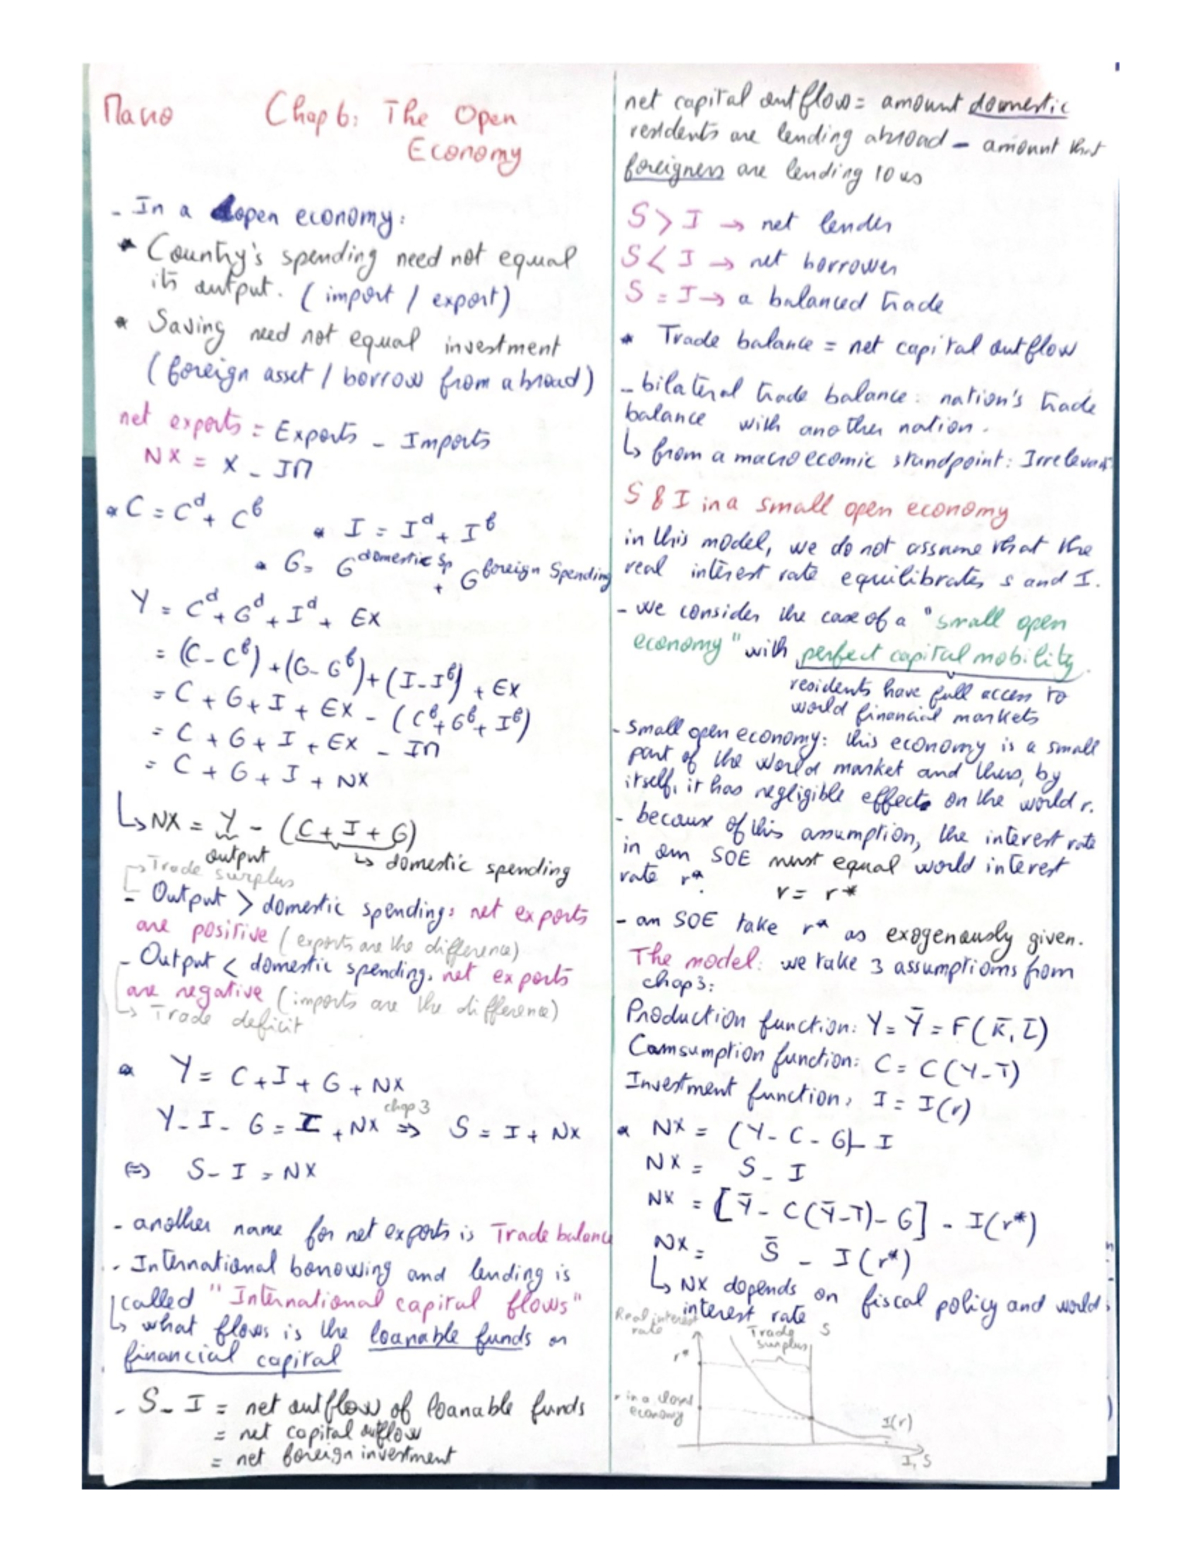 Macro Chap 6: The Open
Economy
- In a open economy:
* Country's spending need not equal
its output. (import / export)
* Saving need not equal investment
(foreign asset / borrow from abroad)
net exports = Exports - Imports
NX = X - IM
* C = C^d + C^f
* I = I^d + I^f
* G = G^domestic sp + G^foreign Spending
Y = C^d + G^d + I^d + EX
= (C - C^f) + (G - G^f) + (I - I^f) + EX
= C + G + I + EX - (C^f + G^f + I^f)
= C + G + I + EX - IM
= C + G + I + NX
↳ NX = Y - (C + I + G)
output ↳ domestic spending
Trade surplus
- Output > domestic spending: net exports
are positive (exports are the difference)
- Output < domestic spending, net exports
are negative (imports are the difference)
↳ Trade deficit
* Y = C + I + G + NX
Y - I - G = I + NX chap 3 ⇒ S = I + NX
⇔ S - I = NX
- another name for net exports is Trade balance
- International borrowing and lending is
called "International capital flows"
↳ what flows is the loanable funds or
financial capital
- S - I = net outflow of loanable funds
= net capital outflow
= net foreign investment
net capital outflow = amount domestic
residents are lending abroad - amount that
foreigners are lending to us
S > I → net lender
S < I → net borrower
S = I → a balanced trade
* Trade balance = net capital outflow
- bilateral trade balance: nation's trade
balance with another nation.
↳ from a macroecomic standpoint: Irrelevant
S & I in a small open economy
in this model, we do not assume that the
real interest rate equilibrates s and I.
- we consider the case of a "small open
economy" with perfect capital mobility.
residents have full access to
world financial markets
- Small open economy: this economy is a small
part of the world market and thus, by
itself, it has negligible effect on the world r.
- because of this assumption, the interest rate
in am SOE must equal world interest
rate r*.
r = r*
- an SOE take r* as exogenously given.
The model: we take 3 assumptions from
chap 3:
Production function: Y = Ȳ = F(K̄, L̄)
Comsumption function: C = C(Y-T)
Investment function: I = I(r)
* NX = (Y - C - G) - I
NX = S - I
NX = [Ȳ - C(Ȳ-T) - G] - I(r*)
NX = S̄ - I(r*)
↳ NX depends on fiscal policy and world
interest rate
Real interest
rate
Trade
surplus
S
r*
r in a closed
economy
I(r)
I, S